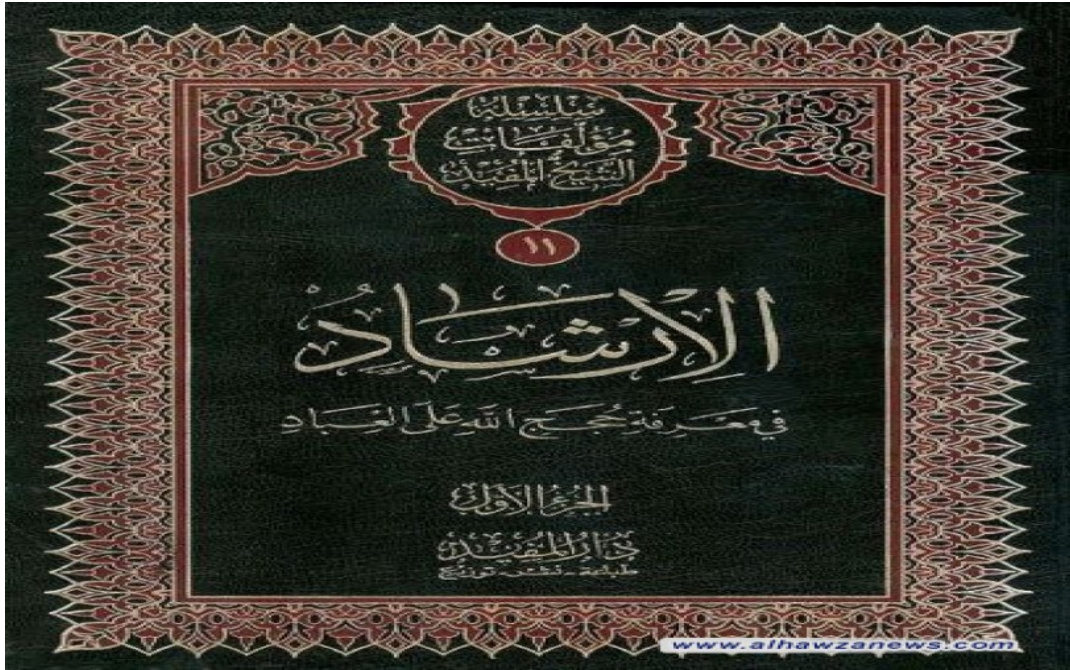 سلسلة
مؤلفات
الشيخ المفيد
١١
الإرشاد
في معرفة حجج الله على العباد
الجزء الأول
دار المفيد
طباعة - نشر - توزيع
www.alhawzanews.com